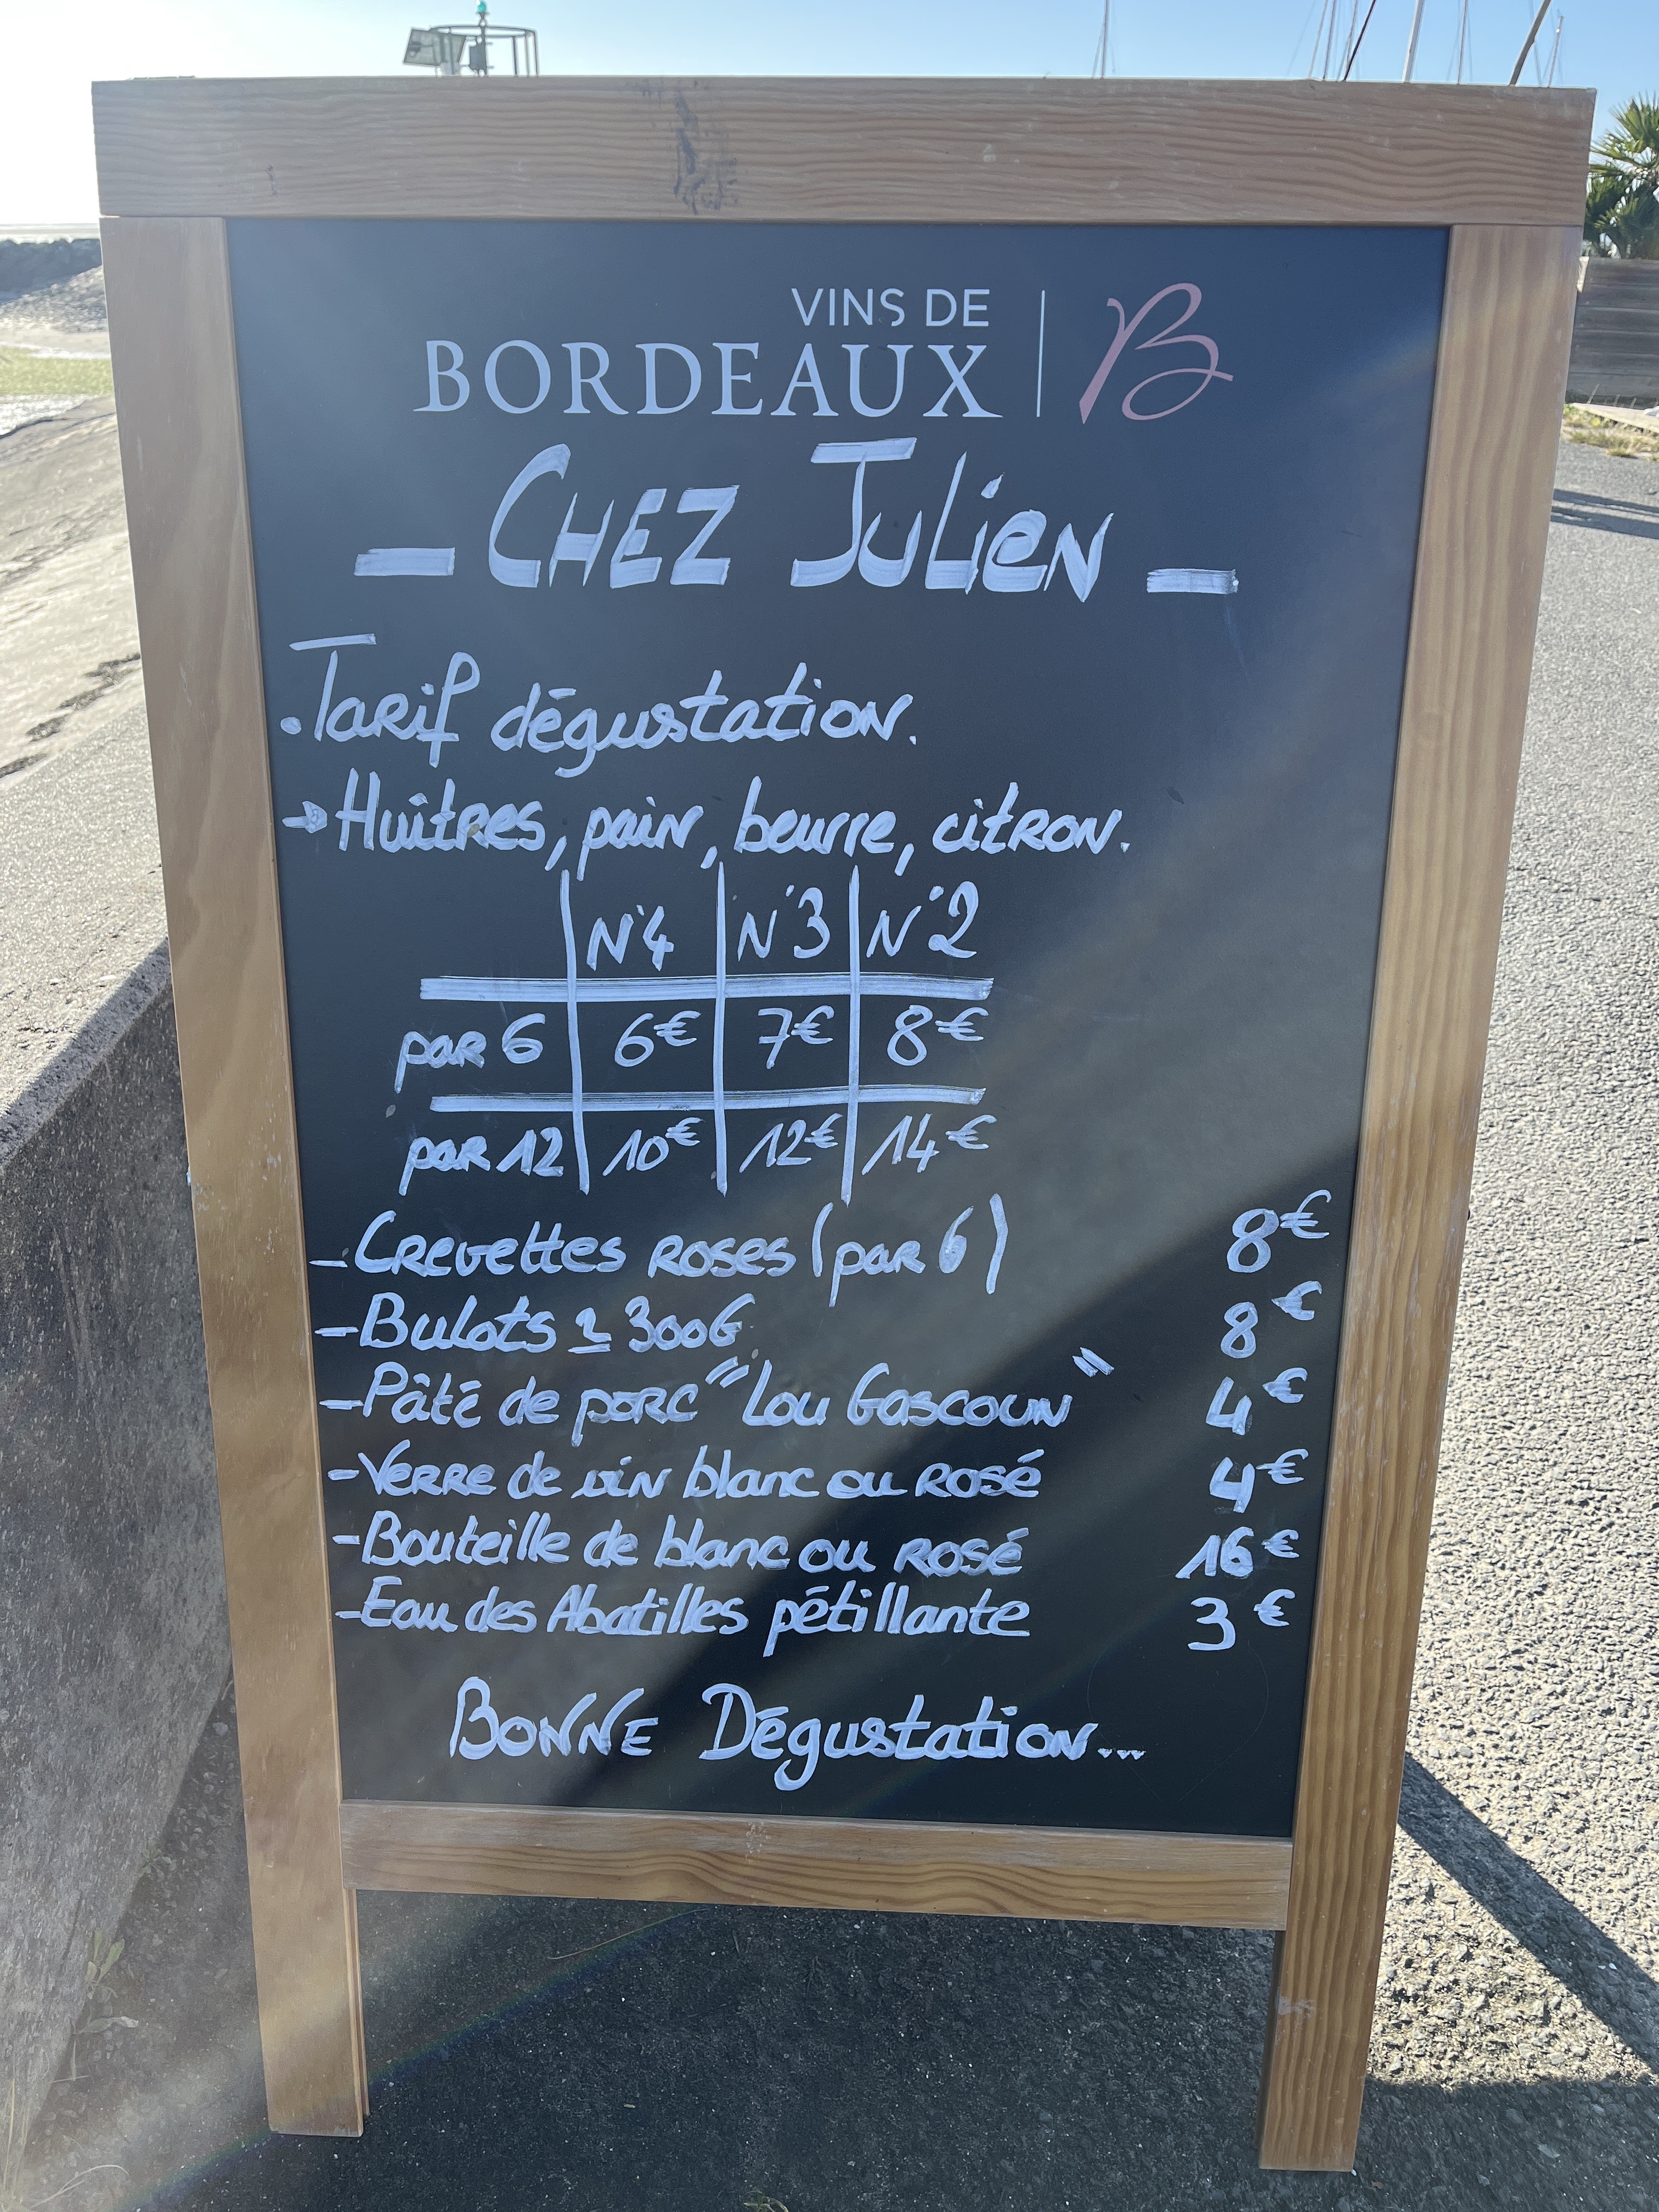 VINS DE
BORDEAUX | B
— CHEZ JULieN —
. Tarif dégustation.
→ Huîtres, pain, beurre, citron.
N°4 | N°3 | N°2
par 6 | 6€ | 7€ | 8€
par 12 | 10€ | 12€ | 14€
- Crevettes roses (par 6) 8€
- Bulots ± 300G 8€
- Pâté de porc "Lou Gascoun" 4€
- Verre de vin blanc ou rosé 4€
- Bouteille de blanc ou rosé 16€
- Eau des Abatilles pétillante 3€
Bonne Dégustation...